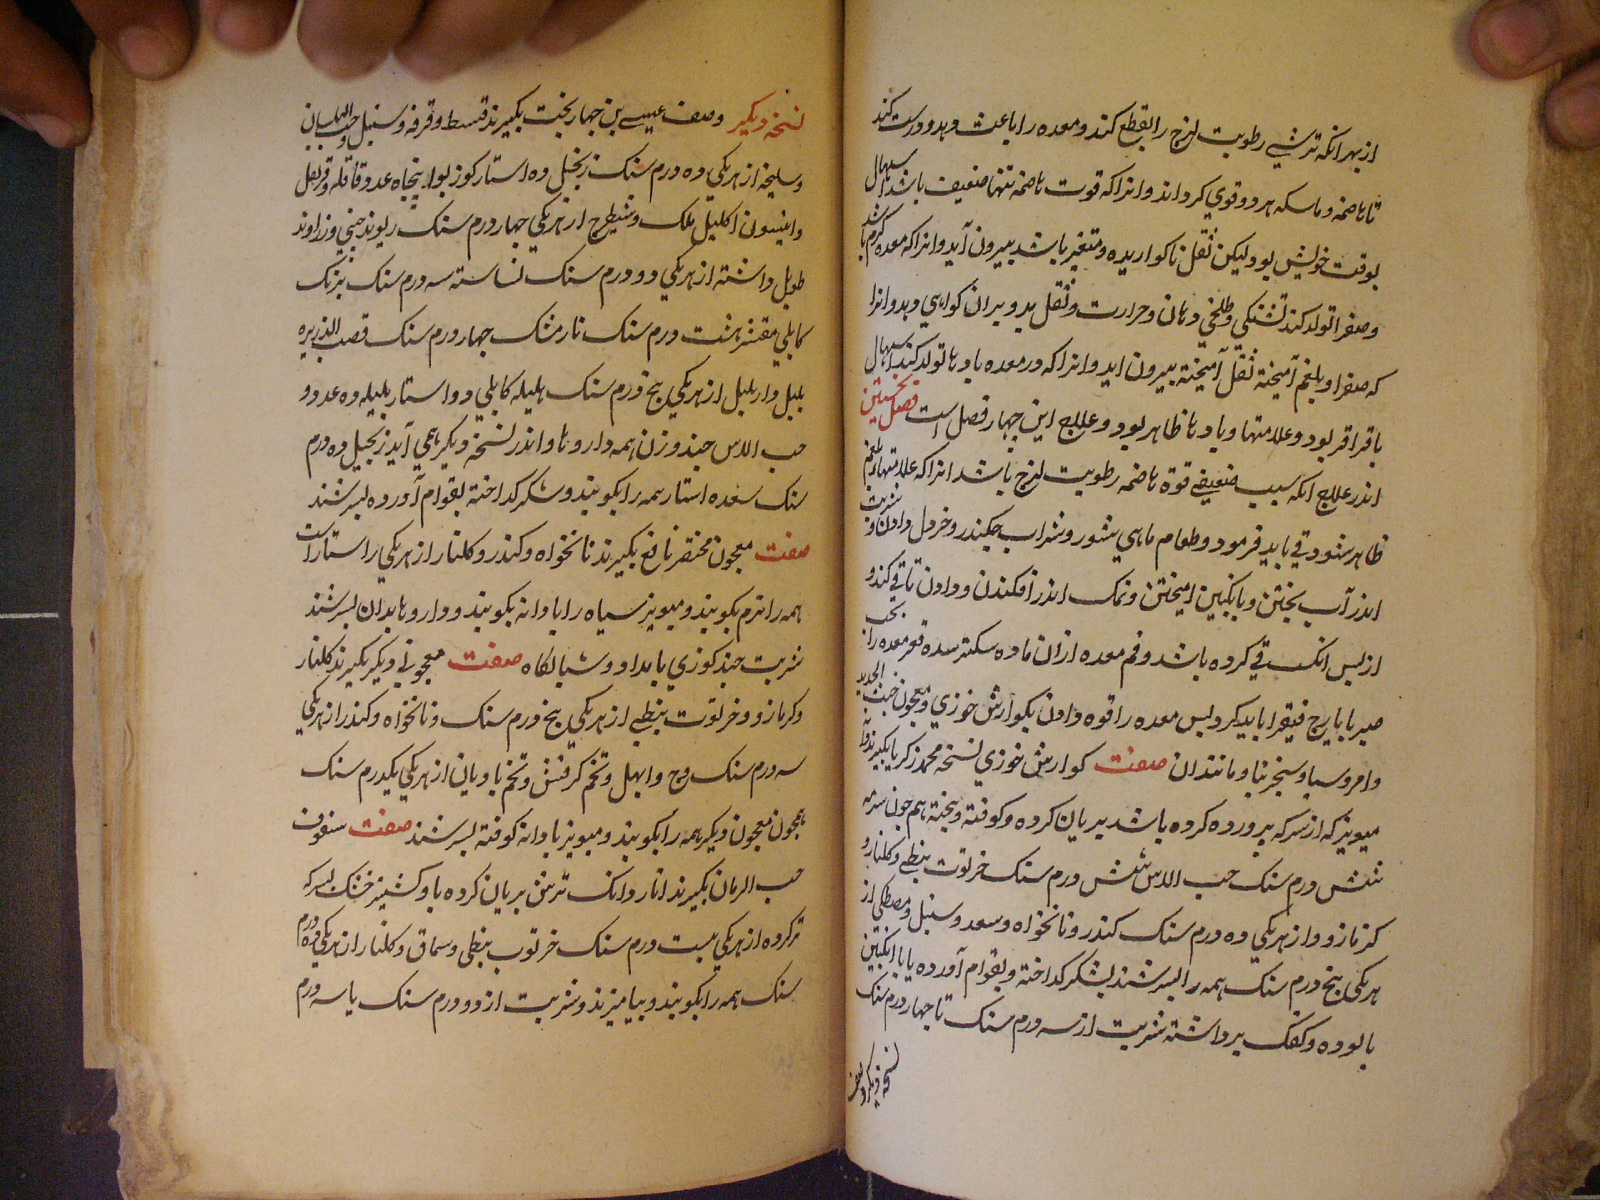 از بهر آنکه ترشی رطوبت لزج را بقطع کند و معده را باعث دهد و درست کند
تا هاضمه و ماسکه هر دو قوی کرداند و انرا که قوت هاضمه تنها ضعیف باشد اسهال
بوقت خویش بود ولیکن ثقل ناکواریده و متغیر باشد بیرون آید و انرا که معده کرم باشد
و صفرا تولد کند تشنکی و طلخی دهان و حرارت و ثقل بدو بران کواهی دهد و انرا
که صفرا و بلغم آمیخته ثقل آمیخته بیرون اید و انرا که در معده بادها تولد کند اسهال
با قراقر بود و علامتهاء بادها ظاهر بود و علاج این چهار فصل است فصل نخستین
اندر علاج انکه سبب ضعیفی قوة هاضمه رطوبت لزج باشد انرا که علامتهاء بلغم
ظاهر شود قی باید فرمود و طعام ماهی شور و شراب چکندر و خردل دادن و شربت
اندر آب پختن و با نکبین امیختن و نمک اندر افکندن و دادن تا قی کند و
از پس انک قی کرده باشد و فم معده ازان ماده شکسته شده قعر معده را بحب
صبر یا بایارج فیقرا باید کرد و پس معده را قوه دادن بکوارش خوزی و معجون خبث الحدید
و امروسیا و سنجرینا و مانند ان صفت کوارش خوزی نسخه محمد زکریا بکیرند
میویز که از سرکه پرورده کرده باشد بریان کرده و کوفته و بیخته هم چون سرمه
شش درم سنک حب الاس شش درم سنک خرنوت نبطی و کلنار و
کزمازو و از هریکی ده درم سنک کندر و نانخواه و سعد و سنبل و مصطکی از
هریکی پنج درم سنک همه را بسرشند بشکر کداخته و بقوام آورده یا بانکبین
پالوده و کفک برداشته شربت از سه درم سنک تا چهار درم سنک
نسخه دیکر وصف
نسخه دیکر وصف عیسی بن چهاربخت بکیرند قسط و قرفه و سنبل و حب البلسان
و سلیخه از هریکی ده درم سنک زنجبیل ده استار کوز بوا پنجاه عدد قاقله و قرنفل
و انیسون اکلیل ملک و شیطرج از هریکی چهار درم سنک ریوند چینی و زراوند
طویل و اشنه از هریکی دو درم سنک نشاسته سه درم سنک برنک
کابلی مقشر هشت درم سنک نارمشک چهار درم سنک قصب الذریره
بلبل و دار بلبل از هریکی پنج درم سنک هلیله کابلی دو استار بلیله ده عدد و
حب الاس چند وزن همه داروها و اندر نسخه دیکر همی آید زنجبیل ده درم
سنک سعد ده استار همه را بکوبند و شکر کداخته بقوام آورده بسرشند
صفت معجون مختصر نافع بکیرند نانخواه و کندر و کلنار از هریکی راستاراست
همه را نرم بکوبند و میویز سیاه را با دانه بکوبند و داروها بدان بسرشند
شربت چند کوزی بامداد و شبانکاه صفت معجونی دیکر بکیرند کلنار
و کزمازو و خرنوت نبطی از هریکی پنج درم سنک و نانخواه و کندر از هریکی
سه درم سنک وج و ابهل و تخم کرفش و تخم بادیان از هریکی یکدرم سنک
همچون معجون دیکر همه را بکوبند و میویز با دانه کوفته بسرشند صفت سفوف
حب الرمان بکیرند انار دانک ترش بریان کرده با و کشنیز خشک بسرکه
تر کرده از هریکی بیست درم سنک خرنوب نبطی و سماق و کلنار از هریکی ده درم
سنک همه را بکوبند و بیامیزند و شربت از دو درم سنک یا سه درم